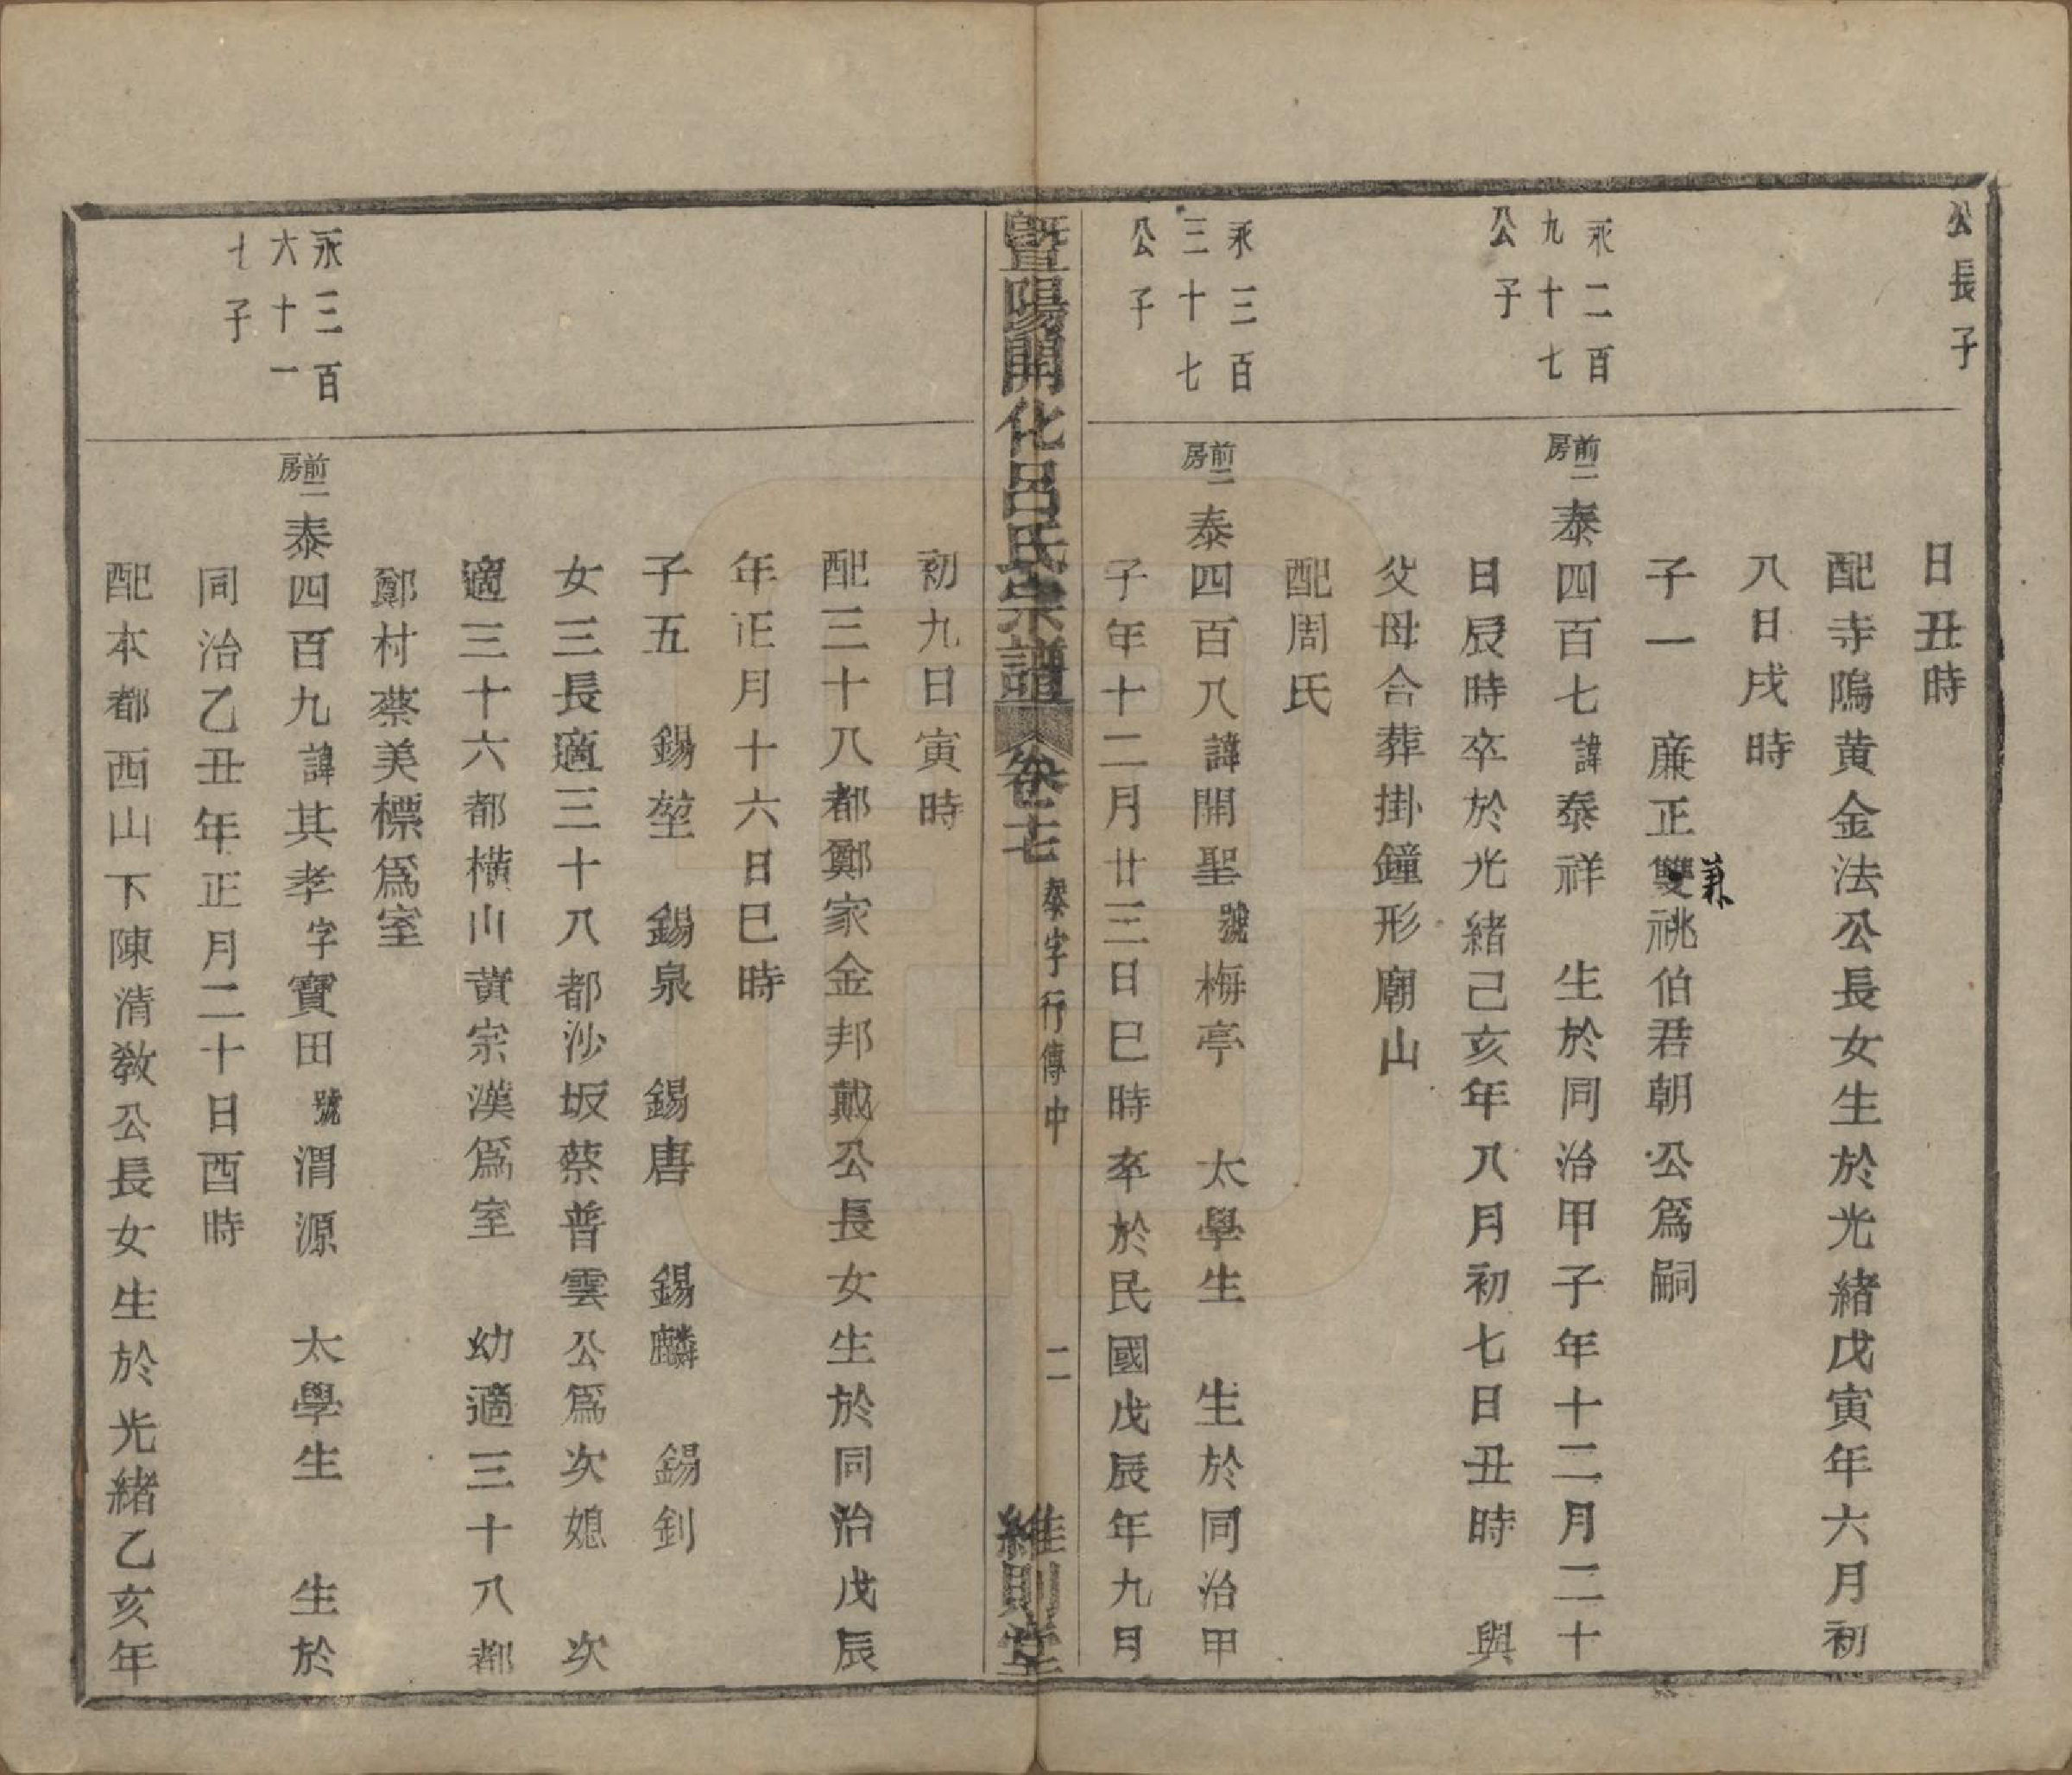 公長子
日丑時
配寺隖黄金法公長女生於光緒戊寅年六月初
八日戌時
子一 㢘正兼雙祧伯君朝公爲嗣
永二百
九十七
公子
前二房泰四百七諱泰祥 生於同治甲子年十二月二十
日辰時卒於光緒己亥年八月初七日丑時 與
父母合葬掛鐘形廟山
配周氏
永三百
三十七
公子
前二房泰四百八諱開聖號梅亭 太學生 生於同治甲
子年十二月廿三日巳時卒於民國戊辰年九月
暨陽開化呂氏宗譜 卷七 泰字行傳中 二 維則堂
初九日寅時
配三十八都鄭家金邦戴公長女生於同治戊辰
年正月十六日巳時
子五 錫堃 錫泉 錫唐 錫麟 錫釗
女三長適三十八都沙坂蔡普雲公爲次媳 次
適三十六都橫山黄宗漢爲室 幼適三十八都
鄭村蔡美標爲室
永三百
六十一
七子
前二房泰四百九諱其孝字寶田號渭源 太學生 生於
同治乙丑年正月二十日酉時
配本都西山下陳清敎公長女生於光緒乙亥年